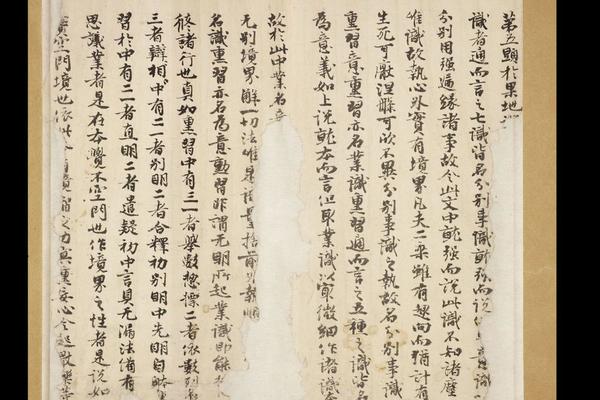 第五顕於果地
識者通而言之七識皆名分別事識就強而說
分別用強遍緣諸事故今此文中就強而說此識不知諸塵
唯識故執心外實有境界凡夫二乘雖有趣向而猶計有
生死可厭涅槃可欣不異分別事識之執故名分別事識
熏習意熏習亦名業識熏習通而言之五種之識皆名
為意義如上說就本而言但取業識以最微細作諸識
故於此中業名
无別境界解一切法唯是識量捨前外執順
名識熏習亦名為意熏習非謂无明所起業識即能
修諸行也真如熏習中有三一者舉數惣標二者依數列
三者辨相中有二一者別明二者合釋初別明中先明自
習於中有二一者直明二者遣疑初中言具无漏法備有
思議業者是在本覺不空門也作境界之性者是說如
實空門境也依此有境智之力冥熏妄心令起厭樂